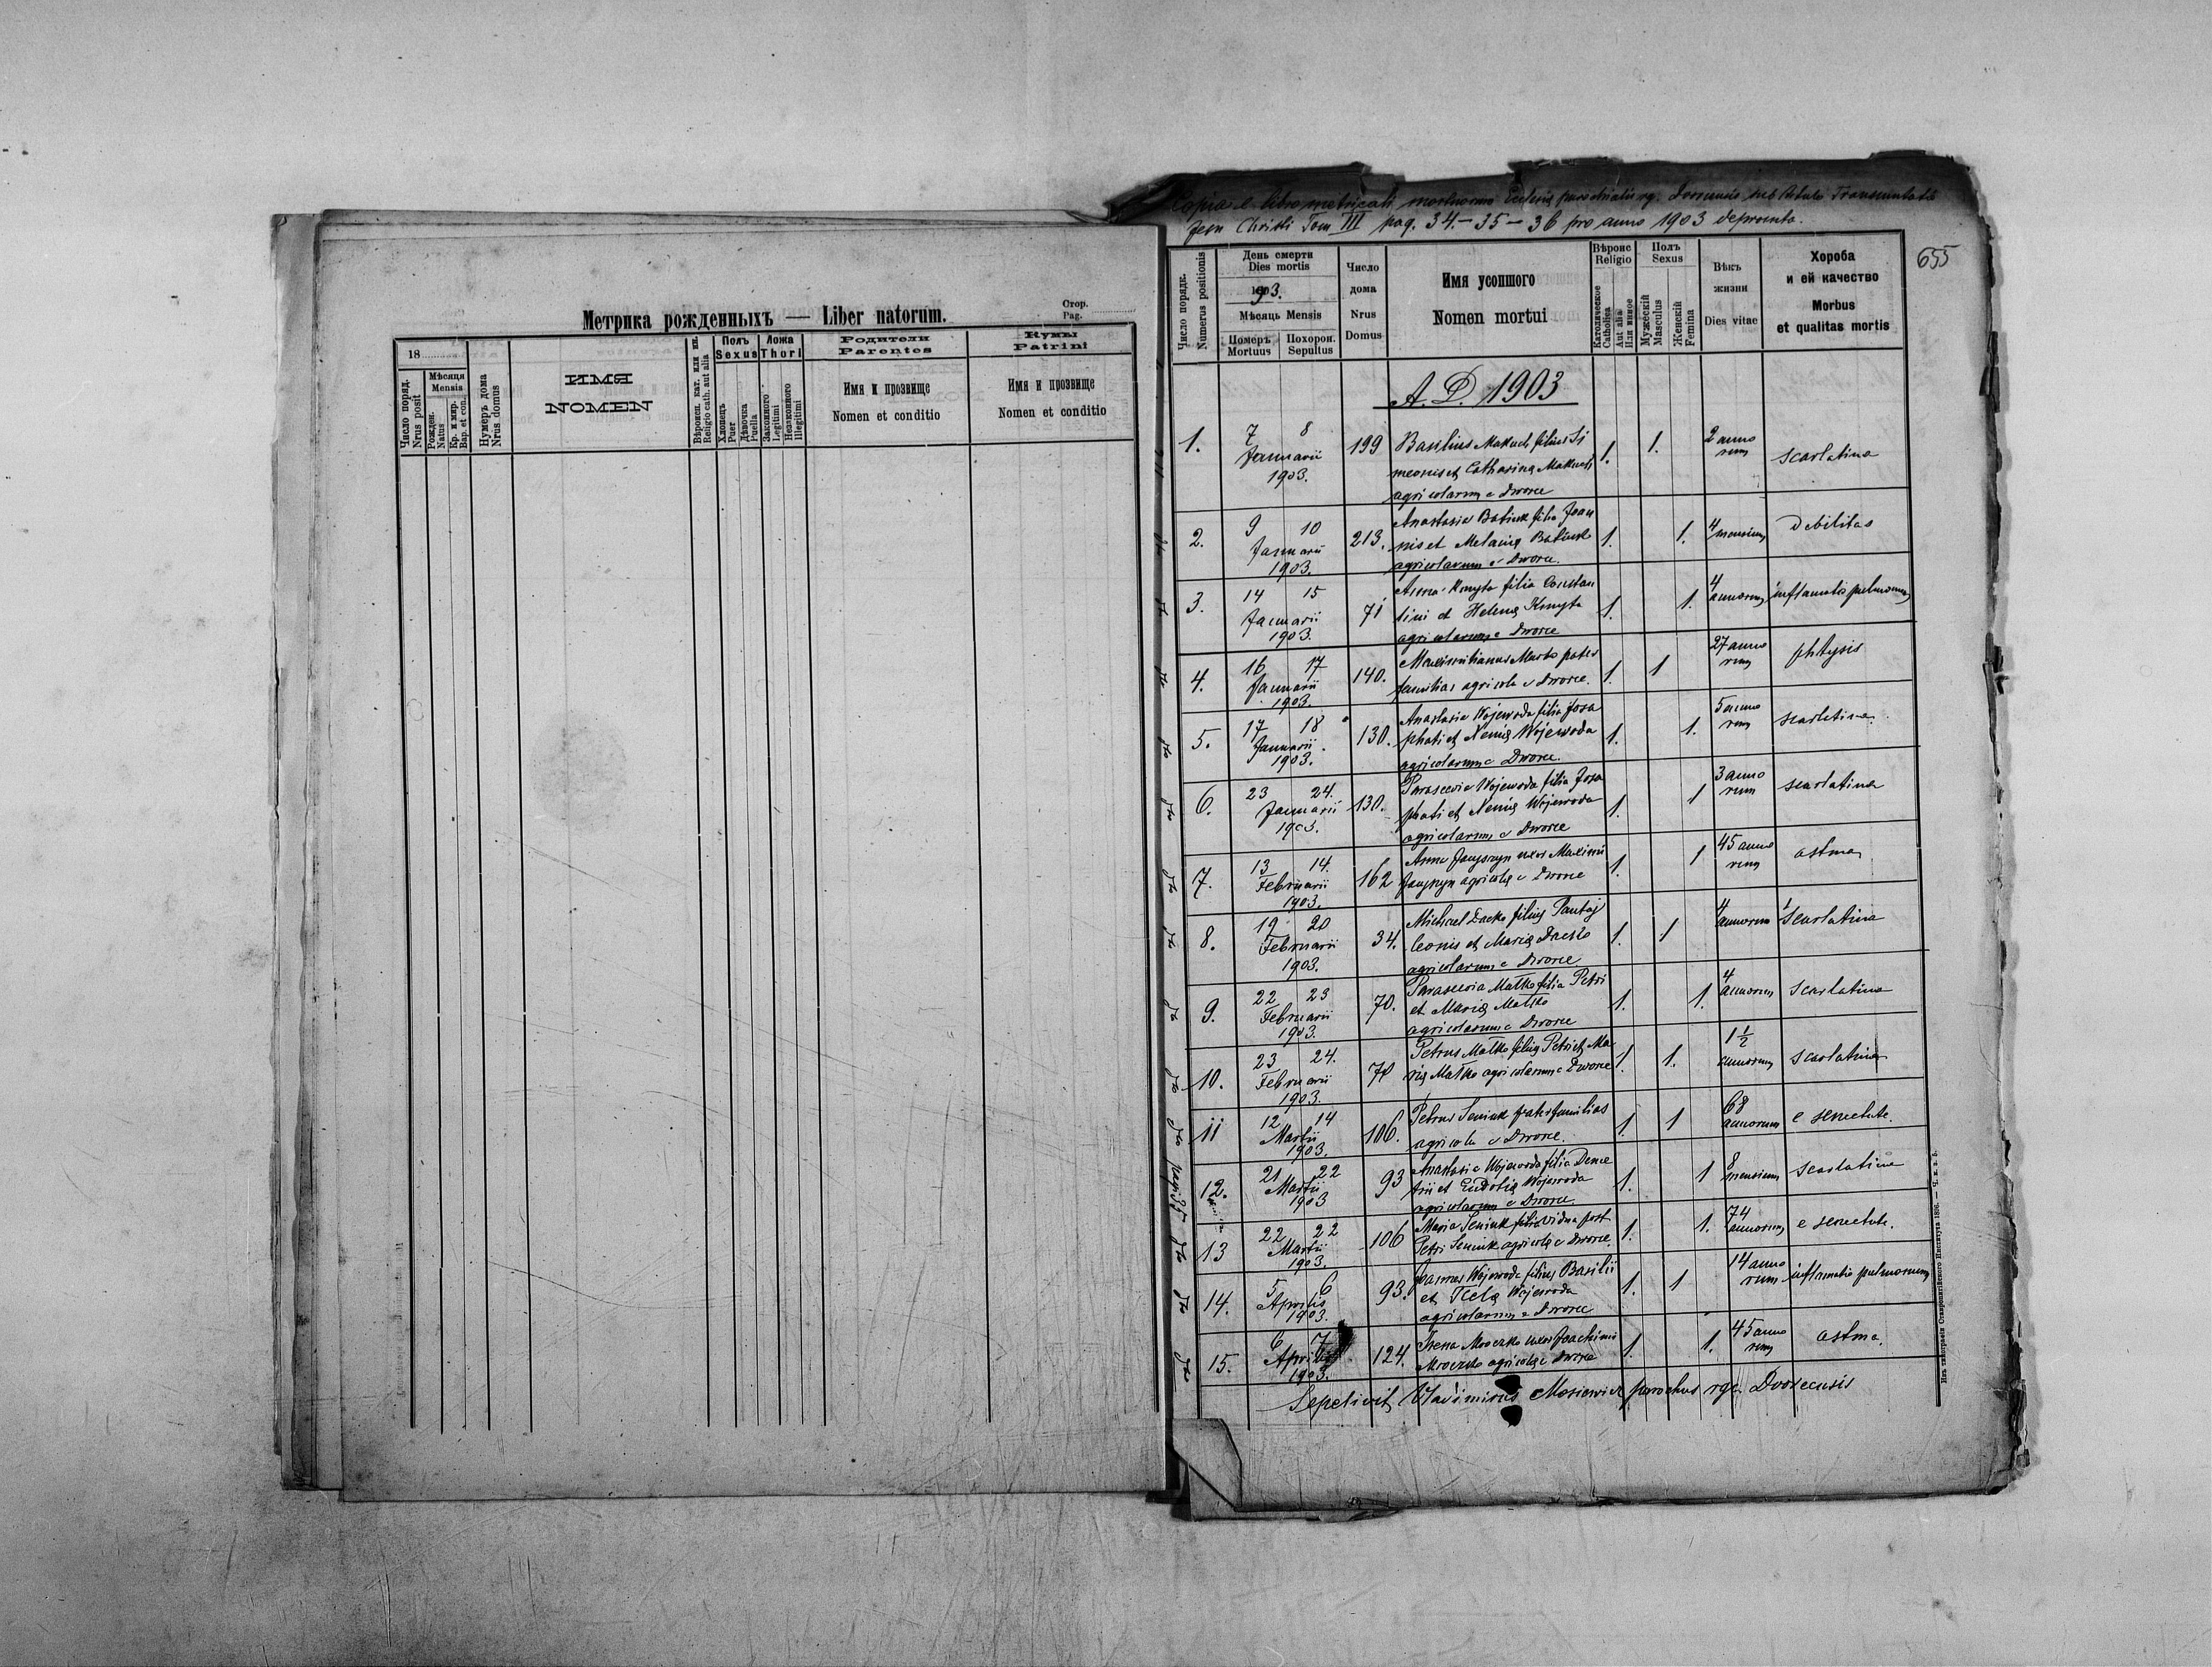 Метрика рожденныхъ — Liber natorum.
Стор.
Pag.
18
Число поряд.
Nrus posit
Мѣсяця
Mensis
Рожден.
Natus
Кр. и мир.
Bap. et con.
Нумеръ дома
Nrus domus
ИМЯ
NOMEN
Вѣроисп. кат. или ин.
Religio cath. aut alia
Полъ
Sexus
Хлопецъ
Puer
Дѣвочка
Puella
Ложа
Thori
Законного
Legitimi
Незаконного
Illegitimi
Родители
Parentes
Имя и прозвище
Nomen et conditio
Кумы
Patrini
Имя и прозвище
Nomen et conditio
Copia e libro metricali mortuorum Ecclesię parochialis rg. sub titulo
Jesu Christi Tom III pag. 34.-35-36 pro anno 1903 deprompta.
655
Число порядк.
Numerus positionis
День смерти
Dies mortis
1903.
Мѣсяць Mensis
Померъ
Mortuus
Похорон.
Sepultus
Число
дома
Nrus
Domus
Имя усопшого
Nomen mortui
Вѣроис
Religio
Католическое
Catholica
Aut alia
Или инное
Полъ
Sexus
Мужескій
Masculus
Женскій
Femina
Вѣкъ
жизни
Dies vitae
Хороба
и ей качество
Morbus
et qualitas mortis
A. D. 1903
1. 7 8 Januarii 1903. 199 Basilius Makuch filius Si
meonis et Catharinę Makuch
agricolarum e Dworce 1. 1. 2 anno
rum scarlatina
2. 9 10 Januarii 1903. 213. Anastasia Batiuk filia Joan
nis et Melanię Batiuk
agricolarum e Dworce. 1. 1. 4 mensium debilitas
3. 14 15 Januarii 1903. 71 Anna Kmyta filia Constan
tini et Helenę Kmyta
agricolarum e Dworce 1. 1. 4 annorum inflamatio pulmonum
4. 16 17 Januarii 1903. 140. Maximilianus pater
familias agricola e Dworce. 1. 1 27 anno
rum phtysis
5. 17 18 Januarii 1903. 130. Anastasia Wojewoda filia Josa
phati et Xenię Wojewoda
agricolarum e Dworce. 1. 1. 5 anno
rum scarlatina.
6. 23 24. Januarii 1903. 130. Parascevia Wojewoda filia Josa
phati et Xenię Wojewoda
agricolarum e Dworce 1. 1 3 anno
rum scarlatina
7. 13 14. Februarii 1903. 162 Anna uxor Maximi
agricolę e Dworce 1. 1 45 anno
rum astma
8. 19 20 Februarii 1903. 34. Michael Dacko filius Pantaj
leonis et Marię Dacko
agricolarum e Dworce 1. 1 4 annorum scarlatina
9. 22 23 Februarii 1903. 70. Parascevia Matko filia Petri
et Marię Matko
agricolarum e Dworce 1. 1. 4 annorum scarlatina
10. 23 24. Februarii 1903. 70 Petrus Matko filius Petri et Ma
rię Matko agricolarum e Dworce 1. 1. 1 1/2 annorum scarlatina
11 12 14 Martii 1903. 106. Petrus Seniuk paterfamilias
agricola e Dworce. 1. 1 68 annorum e senectute.
12. 21 22 Martii 1903 93 Anastasia Wojewoda filia Deme
trii et Eudotię Wojewoda
agricolarum e Dworce 1. 1 8 mensium scarlatina
13 22 22 Martii 1903. 106 Maria Seniuk vidua post
Petri Seniuk agricolę e Dworce 1. 1. 74 annorum e senectute.
14. 5 6 Aprilis 1903. 93. Joannes Wojewoda filius Basilii
et Teclę Wojewoda
agricolarum e Dworce 1. 1 14 anno
rum inflamatio pulmonum
15. 6 7 Aprilis 1903. 124. Irena Mroczko uxor Joachimi
Mroczko agricolę e Dworce 1. 1. 45 anno
rum astma.
Sepelivit Vladimirus Mosiewicz parochus rgc. Dvorecensis
Изъ типографіи Ставропигійского Института 1896. — Ч. к. з. 5.